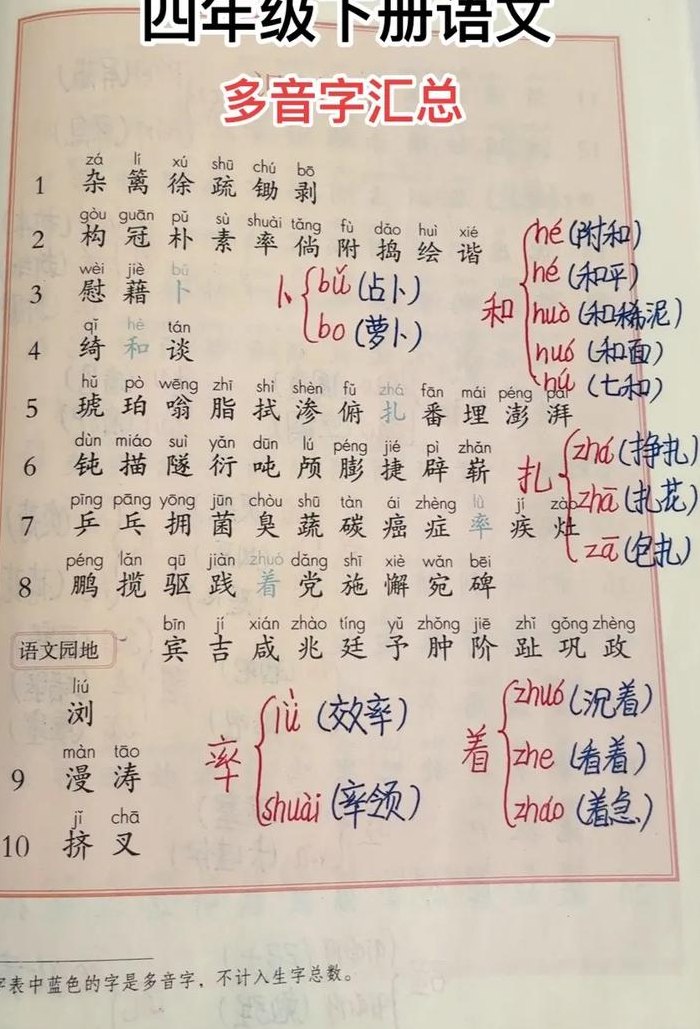 四年级下册语文
多音字汇总
zá lí xú shū chú bō
1 杂 篱 徐 疏 锄 剥
gòu guān pǔ sù shuài tǎng fù dǎo huì xié
2 构 冠 朴 素 率 倘 附 捣 绘 谐
wèi jiè bǔ
3 慰 藉 卜
卜 bǔ (占卜)
bo (萝卜)
和 hé (附和)
hé (和平)
huò (和稀泥)
huó (和面)
hú (七和)
qǐ hè tán
4 绮 和 谈
hǔ pò wēng zhī shì shèn fǔ zhá fān mái péng pài
5 琥 珀 嗡 脂 拭 渗 俯 扎 番 埋 澎 湃
dùn miáo suì yǎn dūn lú péng jié pì zhǎn
6 钝 描 隧 衍 吨 颅 膨 捷 辟 崭
扎 zhá (挣扎)
zhā (扎花)
zā (包扎)
pīng pāng yōng jūn chòu shū tàn ái zhèng lǜ jí zào
7 乒 乓 拥 菌 臭 蔬 碳 癌 症 率 疾 灶
péng lǎn qū jiàn zhuó dǎng shī xiè wǎn bēi
8 鹏 揽 驱 践 着 党 施 懈 宛 碑
bīn jí xián zhào tíng yǔ zhǒng jiē zhǐ gǒng zhèng
语文园地 宾 吉 咸 兆 廷 予 肿 阶 趾 巩 政
liú
浏
màn tāo
9 漫 涛
jǐ chā
10 挤 叉
率 lǜ (效率)
shuài (率领)
着 zhuó (沉着)
zhe (看着)
zháo (着急)
字表中蓝色的字是多音字，不计入生字总数。